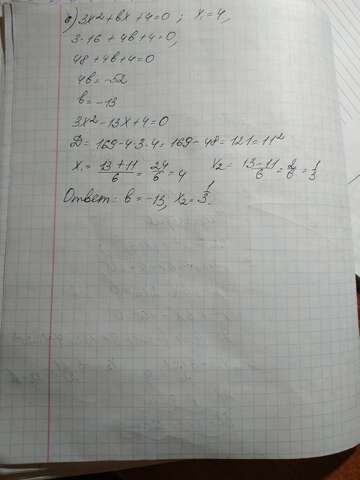 б) 3x²+bx+4=0 ; x₁=4,
3·16+4b+4=0,
48+4b+4=0
4b=-52
b=-13
3x²-13x+4=0
D=169-4·3·4=169-48=121=11²
x₁=13+11/6=24/6=4 x₂=13-11/6=2/6=1/3
Ответ: b=-13, x₂=1/3.